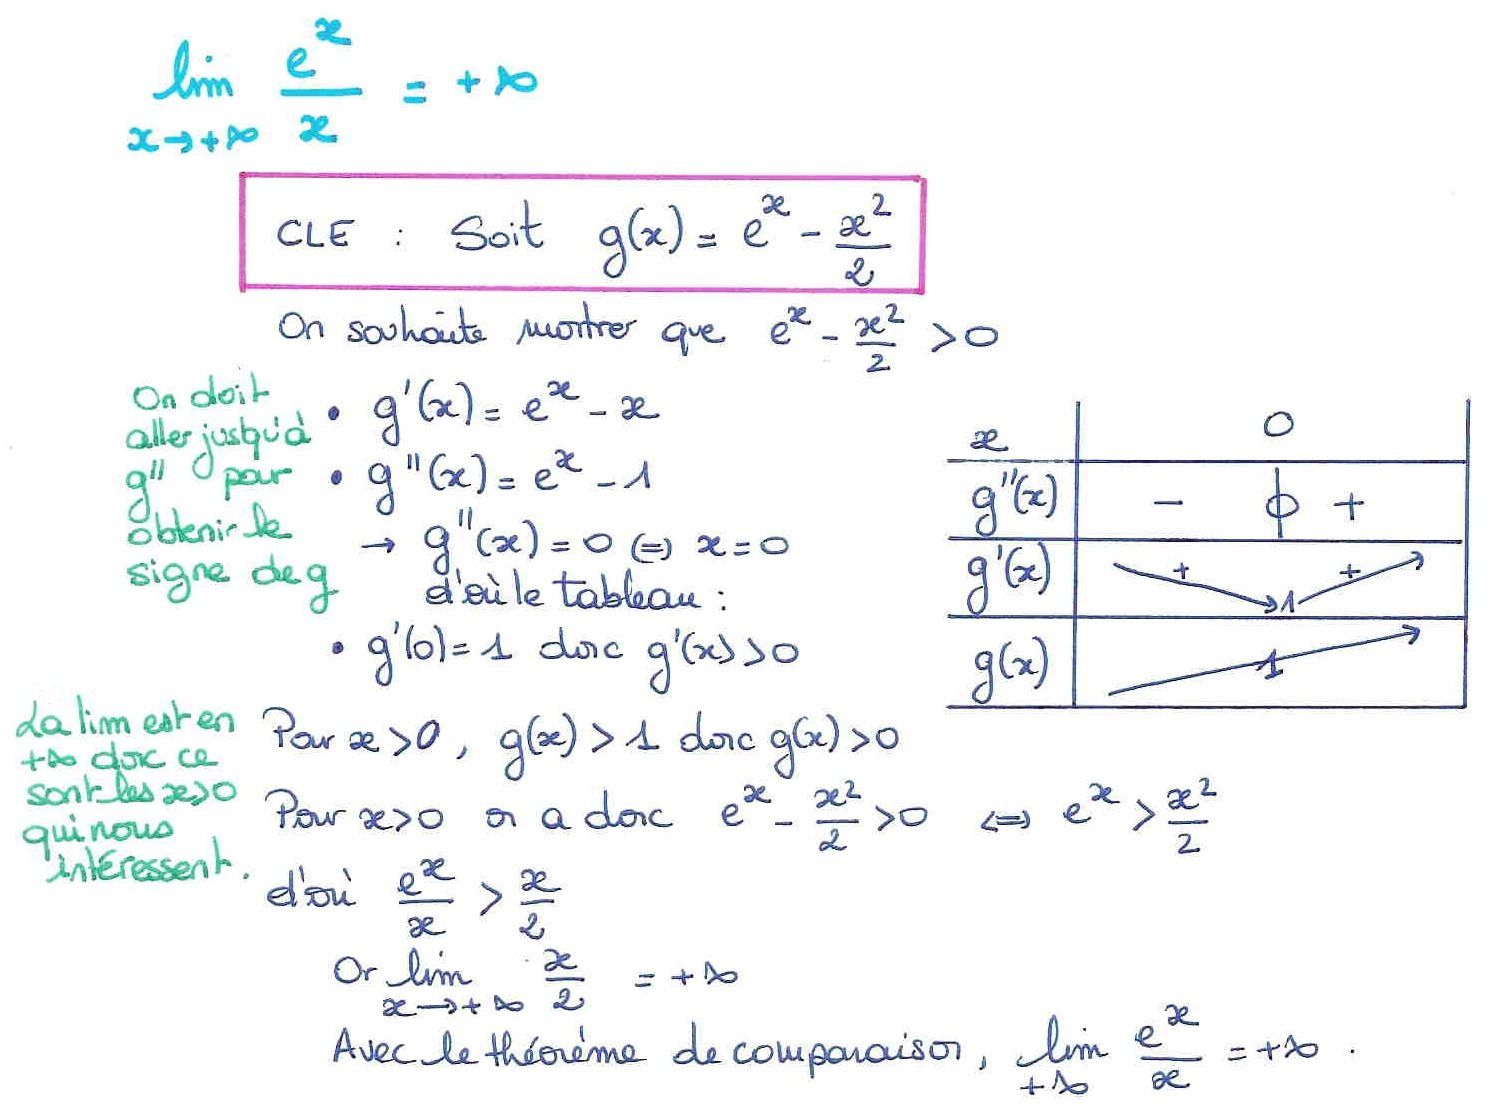 lim e^x/x = +∞
x→+∞
CLE : Soit g(x) = e^x - x²/2
On souhaite montrer que e^x - x²/2 > 0
On doit
aller jusqu'à
g'' pour
obtenir le
signe de g
• g'(x) = e^x - x
• g''(x) = e^x - 1
→ g''(x) = 0 ⇔ x = 0
d'où le tableau :
• g'(0) = 1 donc g'(x) > 0
x 0
g''(x) - 0 +
g'(x) + 1 +
g(x) 1
La lim est en
+∞ donc ce
sont les x>0
qui nous
intéressent.
Pour x > 0, g(x) > 1 donc g(x) > 0
Pour x > 0 on a donc e^x - x²/2 > 0 ⇔ e^x > x²/2
d'où e^x/x > x/2
Or lim x/2 = +∞
x→+∞
Avec le théorème de comparaison, lim e^x/x = +∞ .
+∞